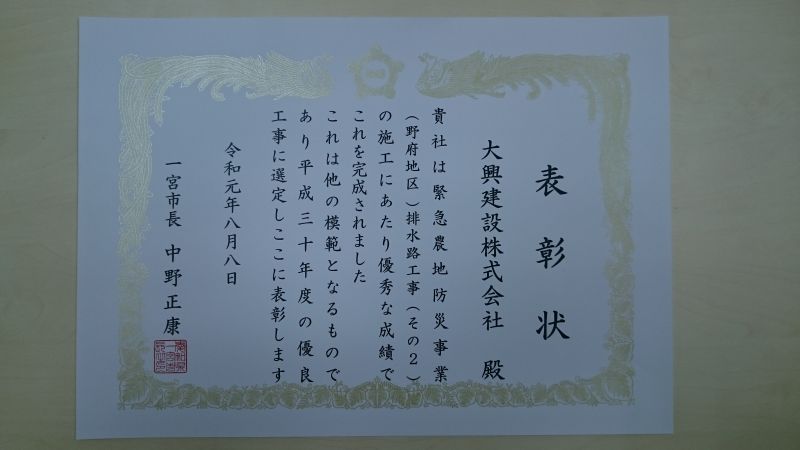 表彰状
大興建設株式会社 殿
貴社は緊急農地防災事業
(野府地区)排水路工事(その2)
の施工にあたり優秀な成績で
これを完成されました
これは他の模範となるもので
あり平成三十年度の優良
工事に選定しここに表彰します
令和元年八月八日
一宮市長 中野正康